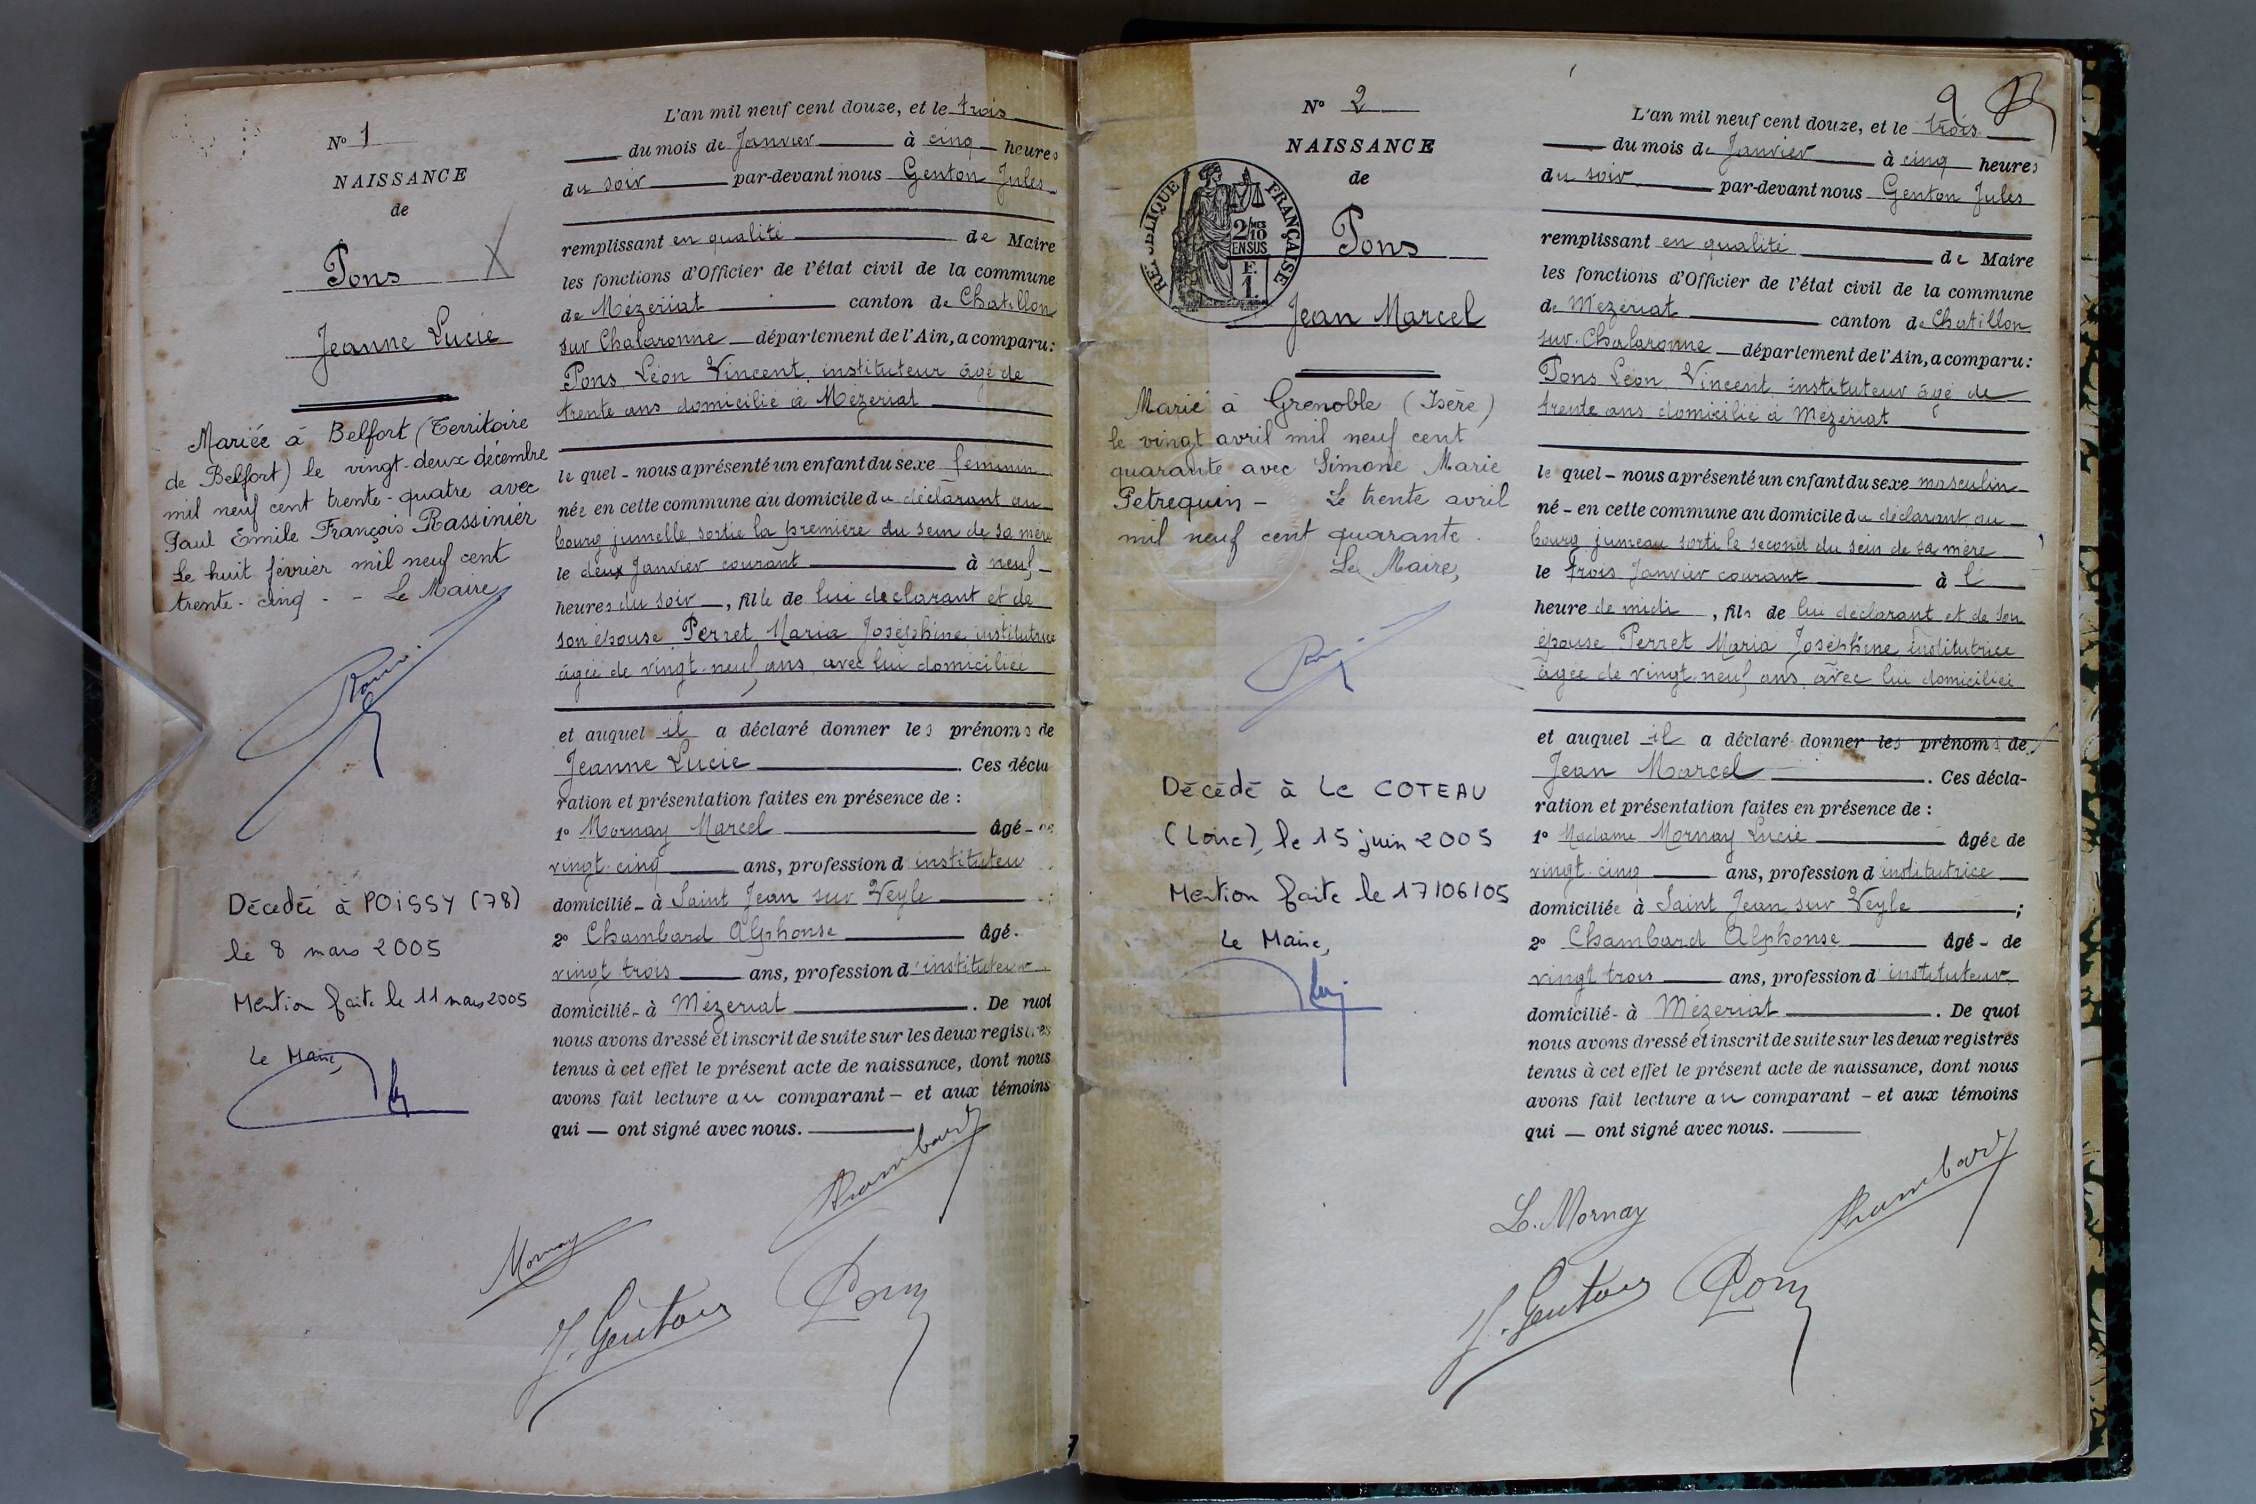 N° 1
NAISSANCE
de
Pons
Jeanne Lucie
Mariée à Belfort (Territoire
de Belfort) le vingt-deux décembre
mil neuf cent trente-quatre avec
Paul Emile François Rassinier
Le huit février mil neuf cent
trente-cinq - - Le Maire,
Décédée à POISSY (78)
le 8 mars 2005
Mention faite le 11 mars 2005
Le Maire,
L'an mil neuf cent douze, et le trois
du mois de Janvier à cinq heures
du soir par-devant nous Genton Jules
remplissant en qualité de Maire
les fonctions d'Officier de l'état civil de la commune
de Mézériat canton de Chatillon
sur Chalaronne département de l'Ain, a comparu:
Pons Léon Vincent instituteur âgé de
trente ans domicilié à Mézériat
le quel - nous a présenté un enfant du sexe féminin
née en cette commune au domicile du déclarant au
bourg jumelle sortie la première du sein de sa mère
le deux Janvier courant à neuf
heures du soir, fille de lui déclarant et de
son épouse Perret Maria Joséphine institutrice
âgée de vingt-neuf ans avec lui domiciliée
et auquel il a déclaré donner les prénoms de
Jeanne Lucie. Ces décla
ration et présentation faites en présence de :
1° Mornay Marcel âgé - de
vingt-cinq ans, profession d'instituteur
domicilié - à Saint Jean sur Veyle
2° Chambard Alphonse âgé -
vingt trois ans, profession d'instituteur
domicilié - à Mézériat. De quoi
nous avons dressé et inscrit de suite sur les deux registres
tenus à cet effet le présent acte de naissance, dont nous
avons fait lecture au comparant - et aux témoins
qui — ont signé avec nous.
Chambard
Mornay
J. Genton Pons
N° 2
NAISSANCE
de
RÉPUBLIQUE FRANÇAISE
2/10 MES
EN SUS
F.
1.
Pons
Jean Marcel
Marié à Grenoble (Isère)
le vingt avril mil neuf cent
quarante avec Simone Marie
Petrequin - Le trente avril
mil neuf cent quarante.
Le Maire,
Décédé à Le COTEAU
(Loire), le 15 juin 2005
Mention faite le 17/06/05
Le Maire,
9
L'an mil neuf cent douze, et le trois
du mois de Janvier à cinq heures
du soir par-devant nous Genton Jules
remplissant en qualité de Maire
les fonctions d'Officier de l'état civil de la commune
de Mézériat canton de Chatillon
sur-Chalaronne département de l'Ain, a comparu:
Pons Léon Vincent instituteur âgé de
trente ans domicilié à Mézériat
le quel - nous a présenté un enfant du sexe masculin
né - en cette commune au domicile du déclarant au
bourg jumeau sorti le second du sein de sa mère
le trois Janvier courant à l'
heure de midi, fils de lui déclarant et de son
épouse Perret Maria Joséphine institutrice
âgée de vingt-neuf ans avec lui domiciliée
et auquel il a déclaré donner les prénoms de
Jean Marcel. Ces décla-
ration et présentation faites en présence de :
1° Madame Mornay Lucie âgée de
vingt-cinq ans, profession d'institutrice
domiciliée à Saint Jean sur Veyle;
2° Chambard Alphonse âgé - de
vingt trois ans, profession d'instituteur
domicilié - à Mézériat. De quoi
nous avons dressé et inscrit de suite sur les deux registres
tenus à cet effet le présent acte de naissance, dont nous
avons fait lecture au comparant - et aux témoins
qui — ont signé avec nous.
L. Mornay Chambard
J. Genton Pons